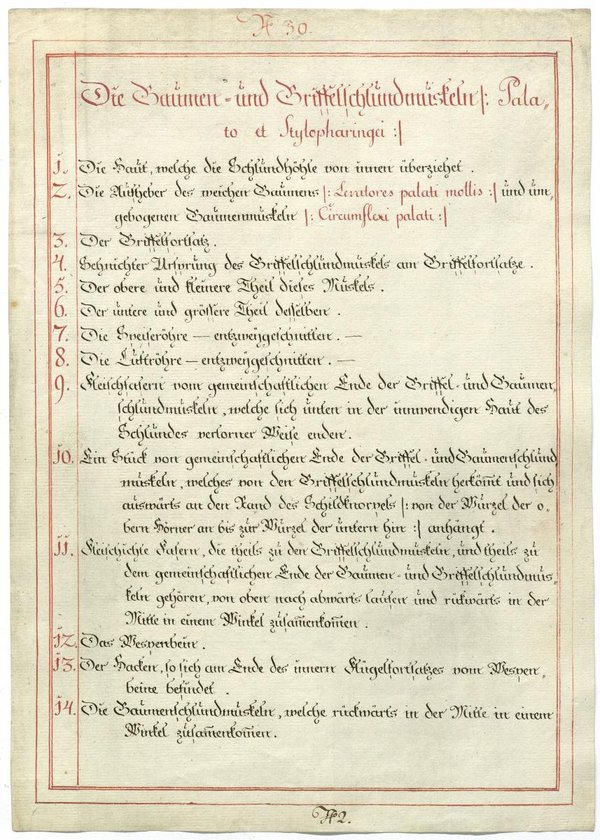 № 30.
Die Gaumen- und Griffelschlundmuskeln /: Pala-
to et Stylopharingei :/
1. Die Haut, welche die Schlundhöhle von innen überziehet.
2. Die Aufheber des weichen Gaumens /: Levatores palati mollis :/ und um-
gebogenen Gaumenmuskeln /: Circumflexi palati :/
3. Der Griffelfortsatz.
4. Sehnichter Ursprung des Griffelschlundmuskels am Griffelfortsatze.
5. Der obere und kleinere Theil dieses Muskels.
6. Der untere und grössere Theil desselben.
7. Die Speiseröhre — entzweygeschnitten. —
8. Die Luftröhre — entzweygeschnitten. —
9. Fleischfasern vom gemeinschaftlichen Ende der Griffel- und Gaumen-
schlundmuskeln, welche sich unten in der innwendigen Haut des
Schlundes verlorner Weise enden.
10. Ein Stück von gemeinschaftlichen Ende der Griffel- und Gaumenschlund
muskeln, welches von den Griffelschlundmuskeln herkömt und sich
auswärts an den Rand des Schildknorpels /: von der Würzel der o-
bern Hörner an bis zur Würzel der untern hin :/ anhängt.
11. Fleischichte Fasern, die theils zu den Griffelschlundmuskeln, und theils zu
dem gemeinschaftlichen Ende der Gaumen- und Griffelschlundmus-
keln gehören, von oben nach abwärts laufen und rückwärts in der
Mitte in einem Winkel zusam̅enkom̅en.
12. Das Wespenbein.
13. Der Hacken, so sich am Ende des innern Flügelfortsatzes vom Wespen-
beine befindet.
14. Die Gaumenschlundmuskeln, welche rückwärts in der Mitte in einem
Winkel zusam̅enkom̅en.
№ 2.